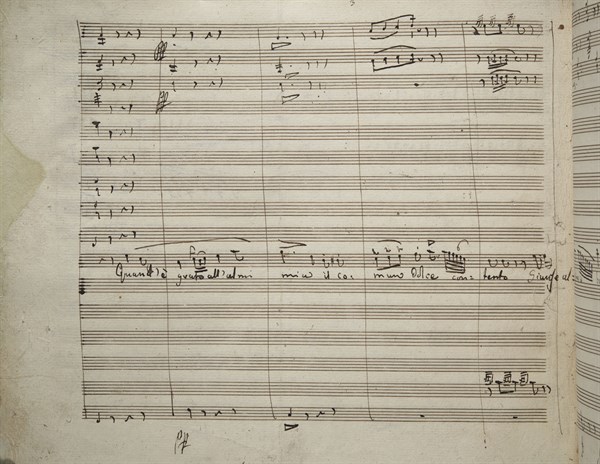 Quant'è grato all'alma mia il co- mun Dolce con- tento Giunge al